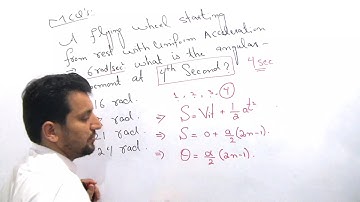 MCQ's:
A flying wheel starting
from rest with uniform Acceleration
6 rad/sec² what is the angular
at 4th Second? 4 sec
16 rad. 1, 2, 3, 4
rad ⇒ S = Vit + 1/2 at²
21 rad ⇒ S = 0 + a/2 (2n-1).
24 rad. ⇒ θ = α/2 (2n-1).